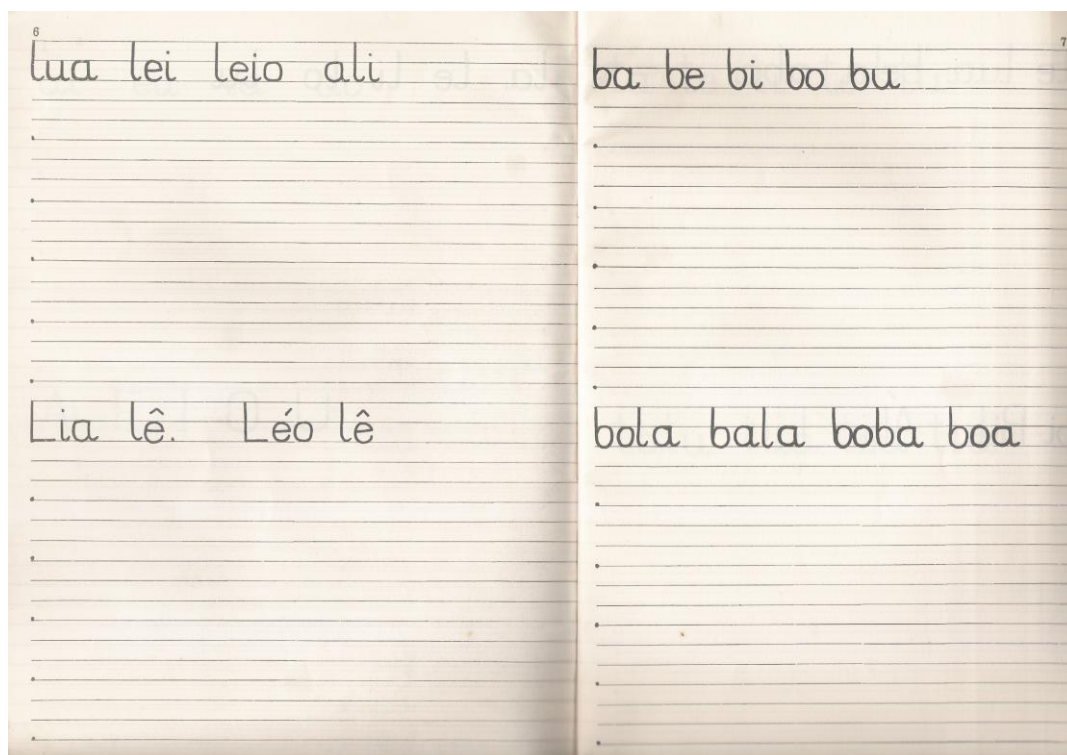 6
lua lei leio ali
Lia lê. Léo lê
7
ba be bi bo bu
bola bala boba boa